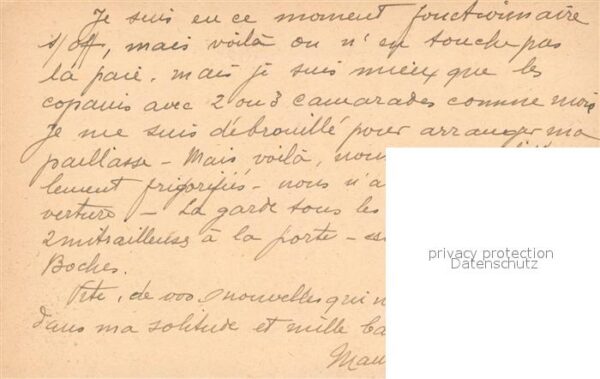 Je suis en ce moment fonctionnaire
s/off, mais voilà on n'en touche pas
la paie. mais je suis mieux que les
copains avec 2 ou 3 camarades comme moi
Je me suis débrouillé pour arranger ma
paillasse - Mais voilà, nou
lement frigorifiés - nous n'a
verture - La garde tous les
2 mitrailleuses à la porte -
Boches.
Vite, de vos nouvelles qui
dans ma solitude et mille ba
Mau
privacy protection
Datenschutz